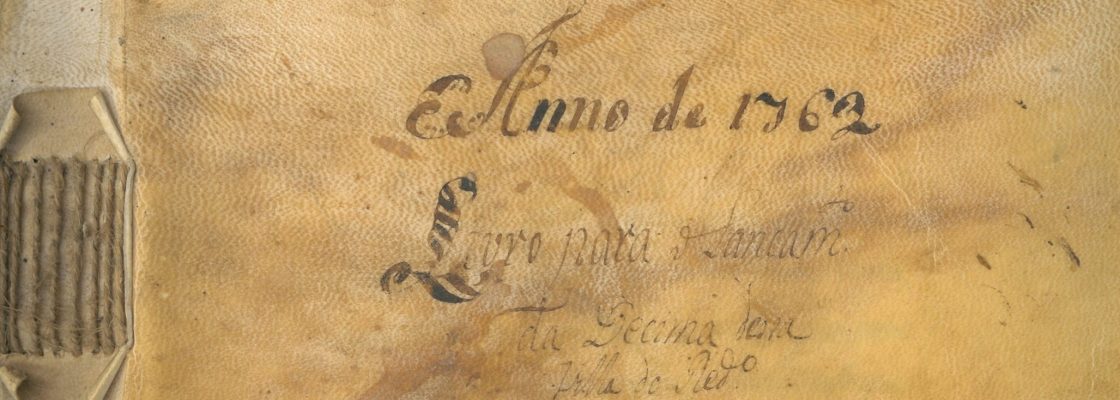 Anno de 1762
Livro para o Lançam.to
da Decima desta
Villa do Red.o